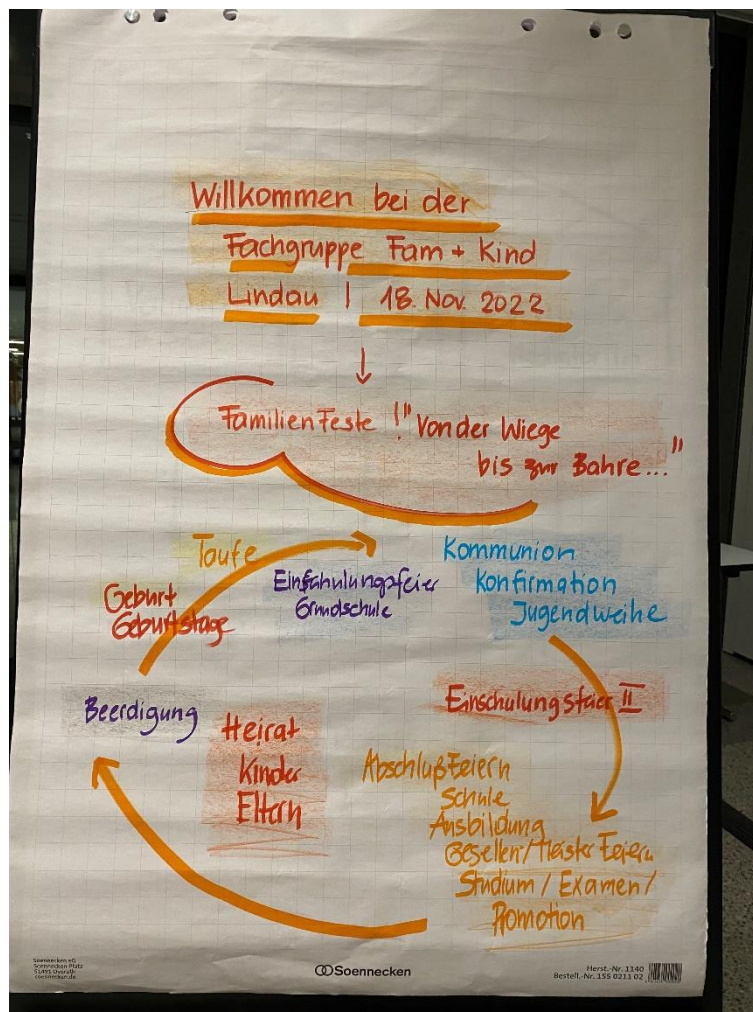 Willkommen bei der
Fachgruppe Fam + Kind
Lindau | 18. Nov. 2022
Familien Feste !" Von der Wiege
bis zur Bahre..."
Taufe
Geburt
Geburtstage
Einschulungsfeier
Grundschule
Kommunion
Konfirmation
Jugendweihe
Einschulungsfeier II
Abschlußfeiern
Schule
Ausbildung
Gesellen/Meister Feiern
Studium / Examen /
Promotion
Heirat
Kinder
Eltern
Beerdigung
Soennecken eG
Soennecken-Platz
51491 Overath
soennecken.de
Soennecken
Herst.-Nr. 1140
Bestell.-Nr. 155 0211 02